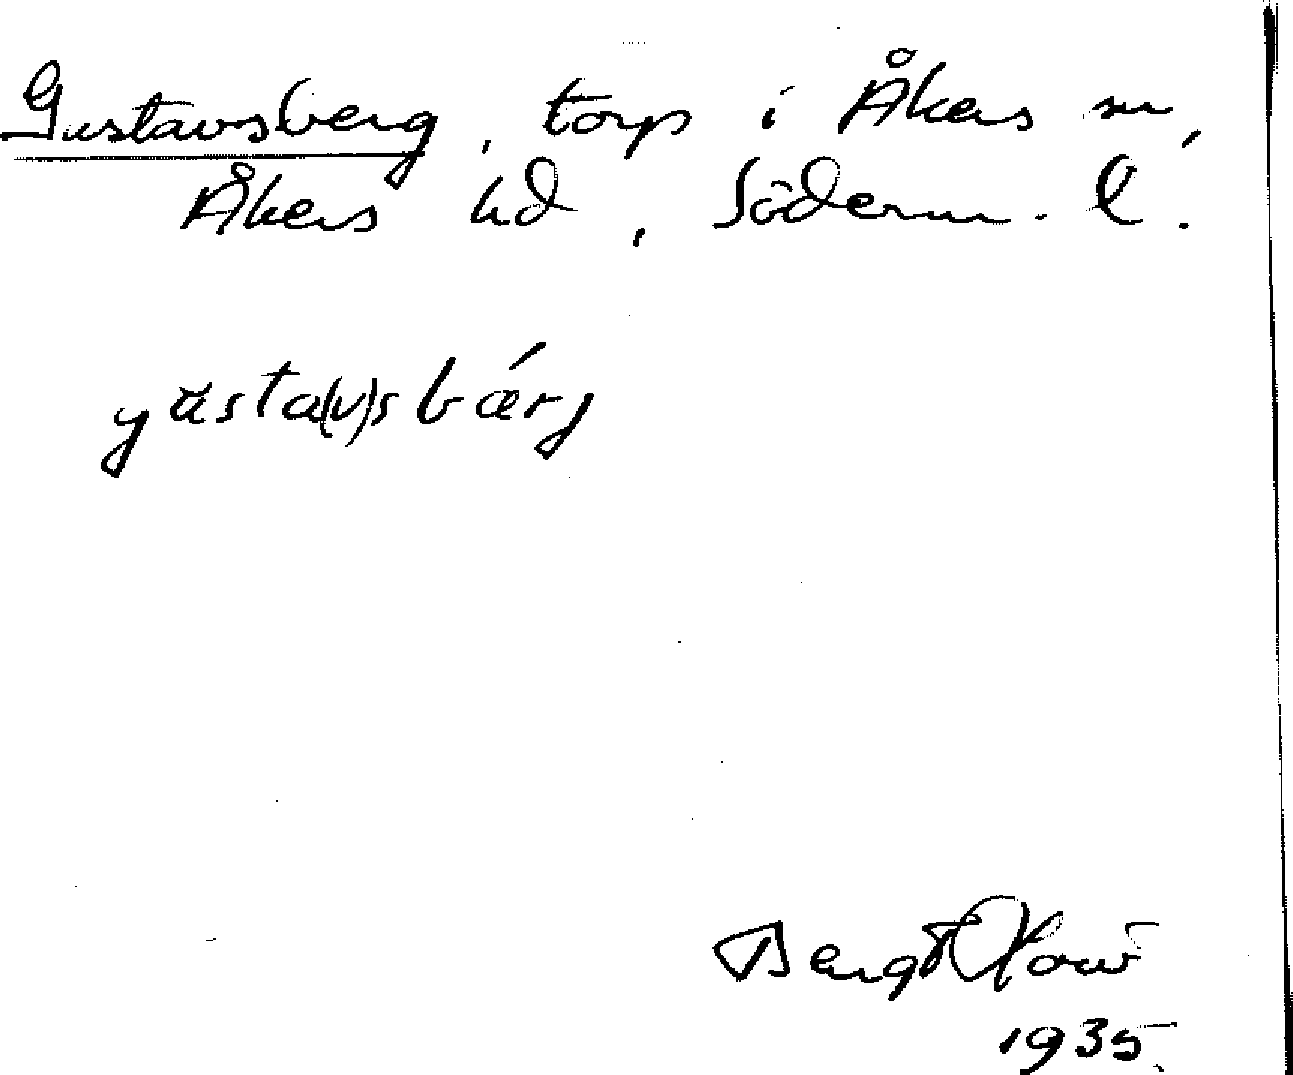 Gustavsberg, torp i Åkers sn,
Åkers hd, Söderm. l.
gusta(v)sbárj
Bengt
1935